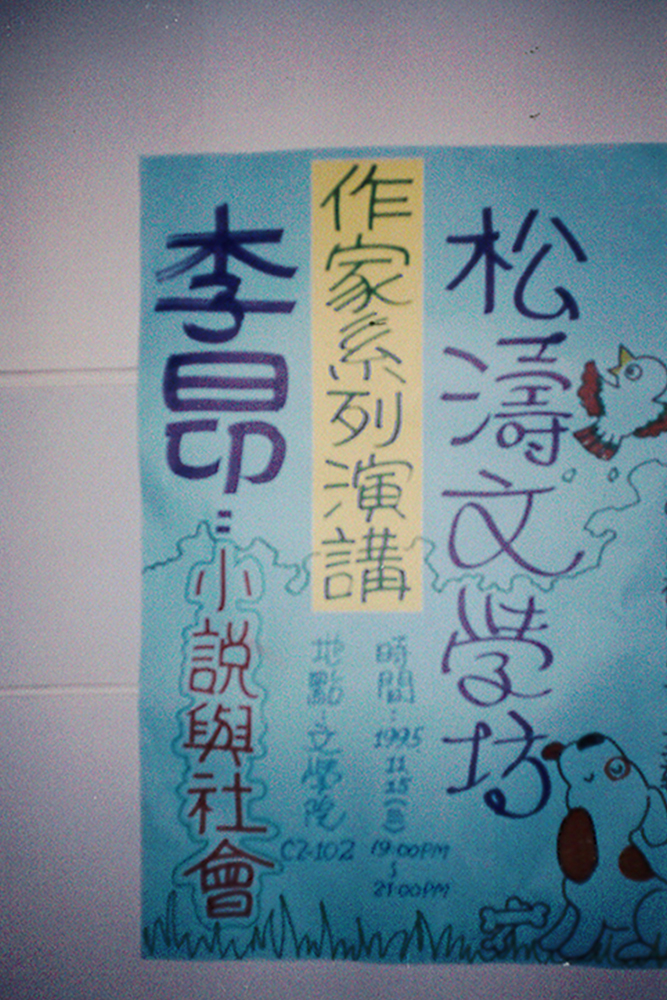 松濤文學坊
作家系列演講
李昂：小說與社會
時間：1995
11
15(三)
19:00PM
~
21:00PM
地點：文學院
C2-102